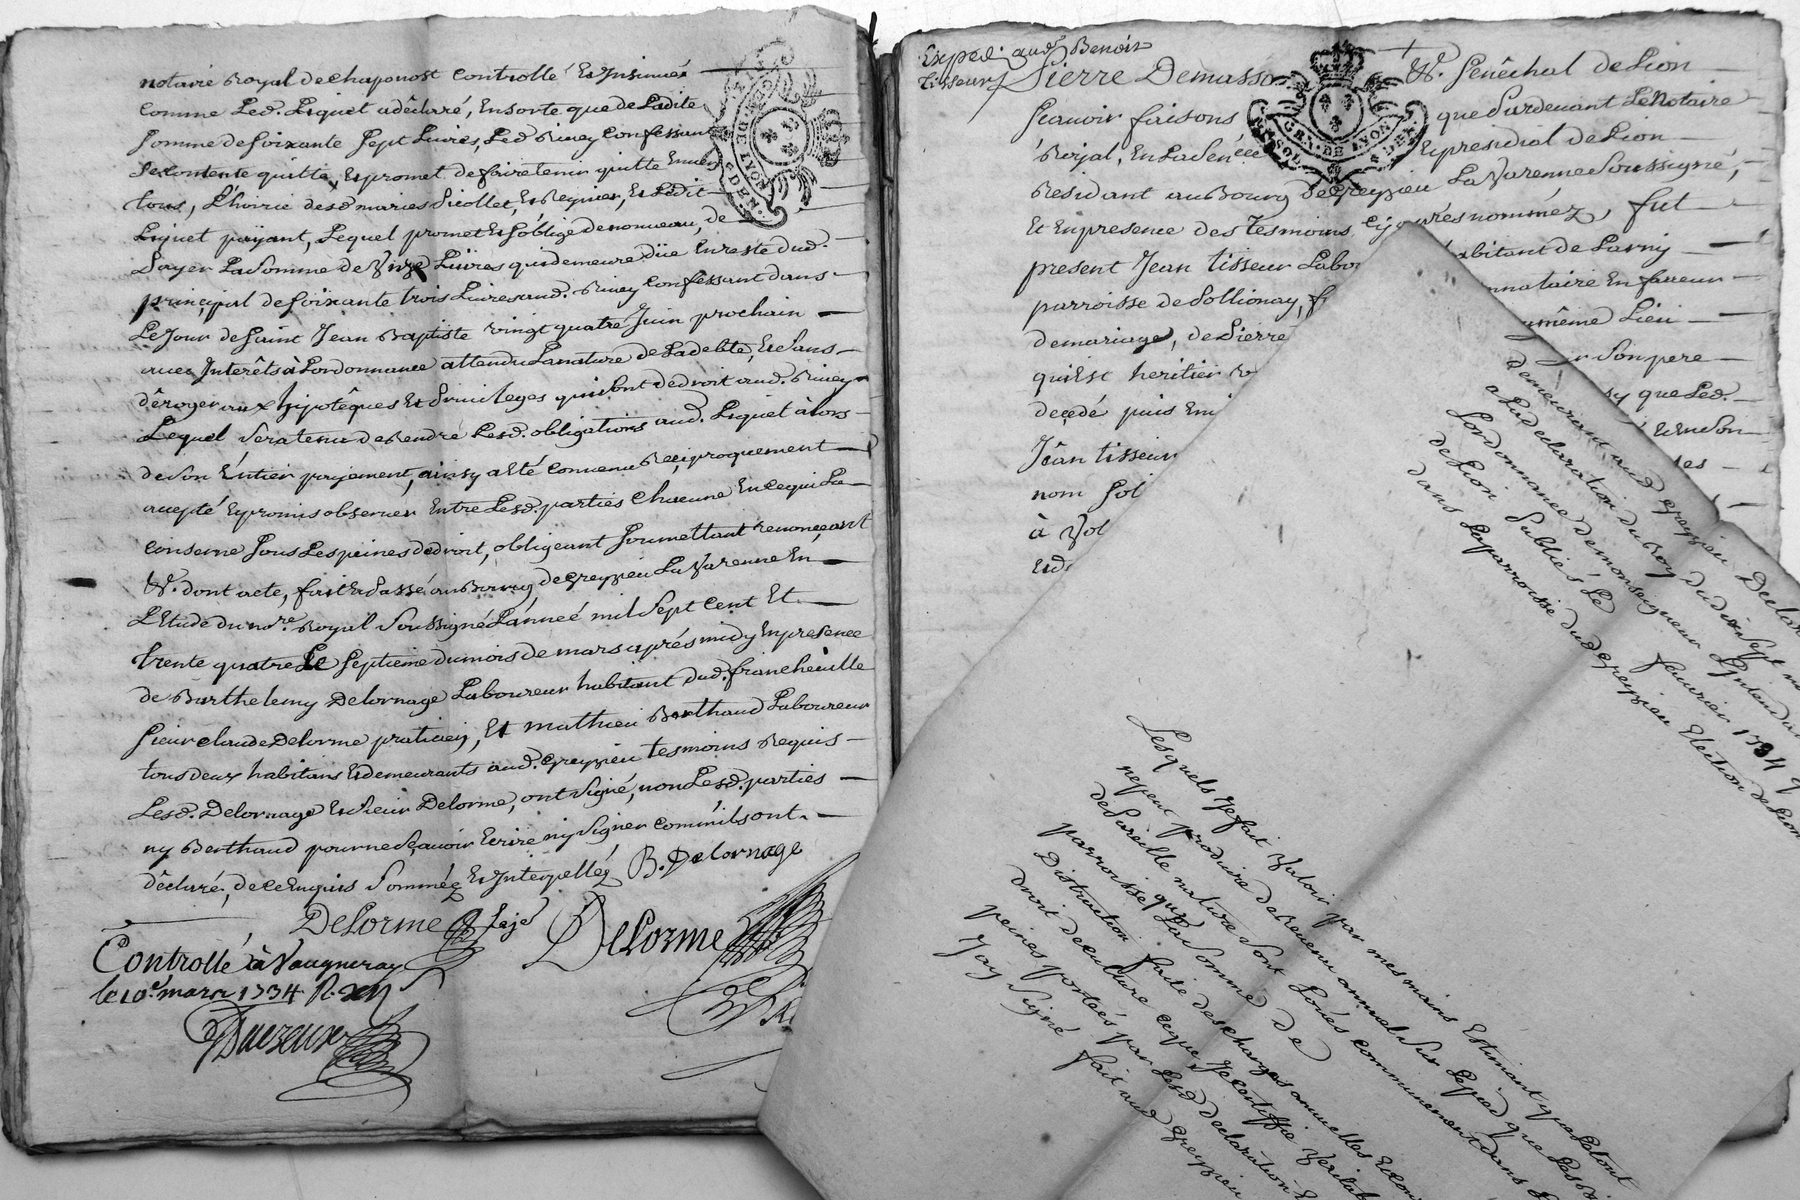 notaire Royal de chaponost controllé Et Insinué
comme Led. Piquet a dêclaré, Ensorte que de Ladite
somme de soixante sept Livres, Led Riuey confessant
se contente quitte, Et promet defaire tenir quitte Enuers
tous, L'hoirie desd mariés Piollet, Et Reynier, Et Ledit
Piquet payant, Lequel promet Et soblige denouveau, de
Payer La somme de Onze Livres qui demeure düe En reste dud.
principal de soixante trois Livres aud. Riuey confessant dans
Le Jour de saint Jean Baptiste vingt quatre Juin prochain
auec Interêts à Lordonnance attendu La nature de La debte, Et sans
dêroger aux hipotêques Et Priuileges qui sont de droit aud. Riuey
Lequel sera tenu de Rendre Lesd. obligations aud. Piquet à lors
de son Entier payement, ainsy a Eté conuenu Reciproquement
accepté Et promis obseruer Entre Lesd. parties chacune En ce qui La
conserne sous Les peines de droit, obligeant soumettant renonçant
&. dont acte, fait Et Passé au Bourg de greyzieu La Varenne En
L'Etude du no.re Royal soussigné L'année mil sept cent Et
trente quatre Le septieme du mois de mars aprés midy En presence
de Barthelemy Delornage Laboureur habitant dud. francheuille
sieur claude Delorme praticien, Et mathieu Berthaud Laboureur
tous deux habitans Et demeurants aud. greyzieu tesmoins Requis
Lesd. Delornage Et sieur Delorme, ont signé, non Lesd. parties
ny Berthaud pour ne sçauoir Ecrire ny signer comm'ils ont
dêclaré, de ce Enquis sommés Et Interpellés B. Delornage
Delorme Leje Delorme
Controllé à Vaugneray
le 10e. mars 1734 R.
Duezeux
GEN. DE LYON
Expedi. aud. Benoit
tisseur
Pierre Demasso &. senêchal de Lion
sçauoir faisons que Pardeuant Le Notaire
Royal, En La sen.cée Et presidial de Lion
Residant au Bourg de greyzieu La Varenne soussigné,
Et En presence des tesmoins cy aprés nommez, fut
present Jean tisseur Labo habitant de Larny
parroisse de Pollionay, nataire En faueur
de mariage, de Pierre même Lieu
qui Est heritier son pere
decedé puis que Led.
Jean tisseur Et En son
nom sol
à Vol
GEN. DE LYON
demeurant aud greyzieu Declar
a La declaration du Roy du dix sept
Lordonnance de monseigneur L'Intendan
de Lion Publiés Le feurier 1734
dans La parroisse dud greyzieu Election de Lion
Lesquels Je fait Valoir par mes mains Estimant que Le tout
ne peut produire de Reuenu annuel sur Le pied que Les
de Pareille nature sont Loués communement dans
parroisse, que La somme de
Distraction faite des charges annuelles
droit de culture ce que Je certiffie Veritab
peines portées par Lesd declaration
Jay signé fait aud greyzieu